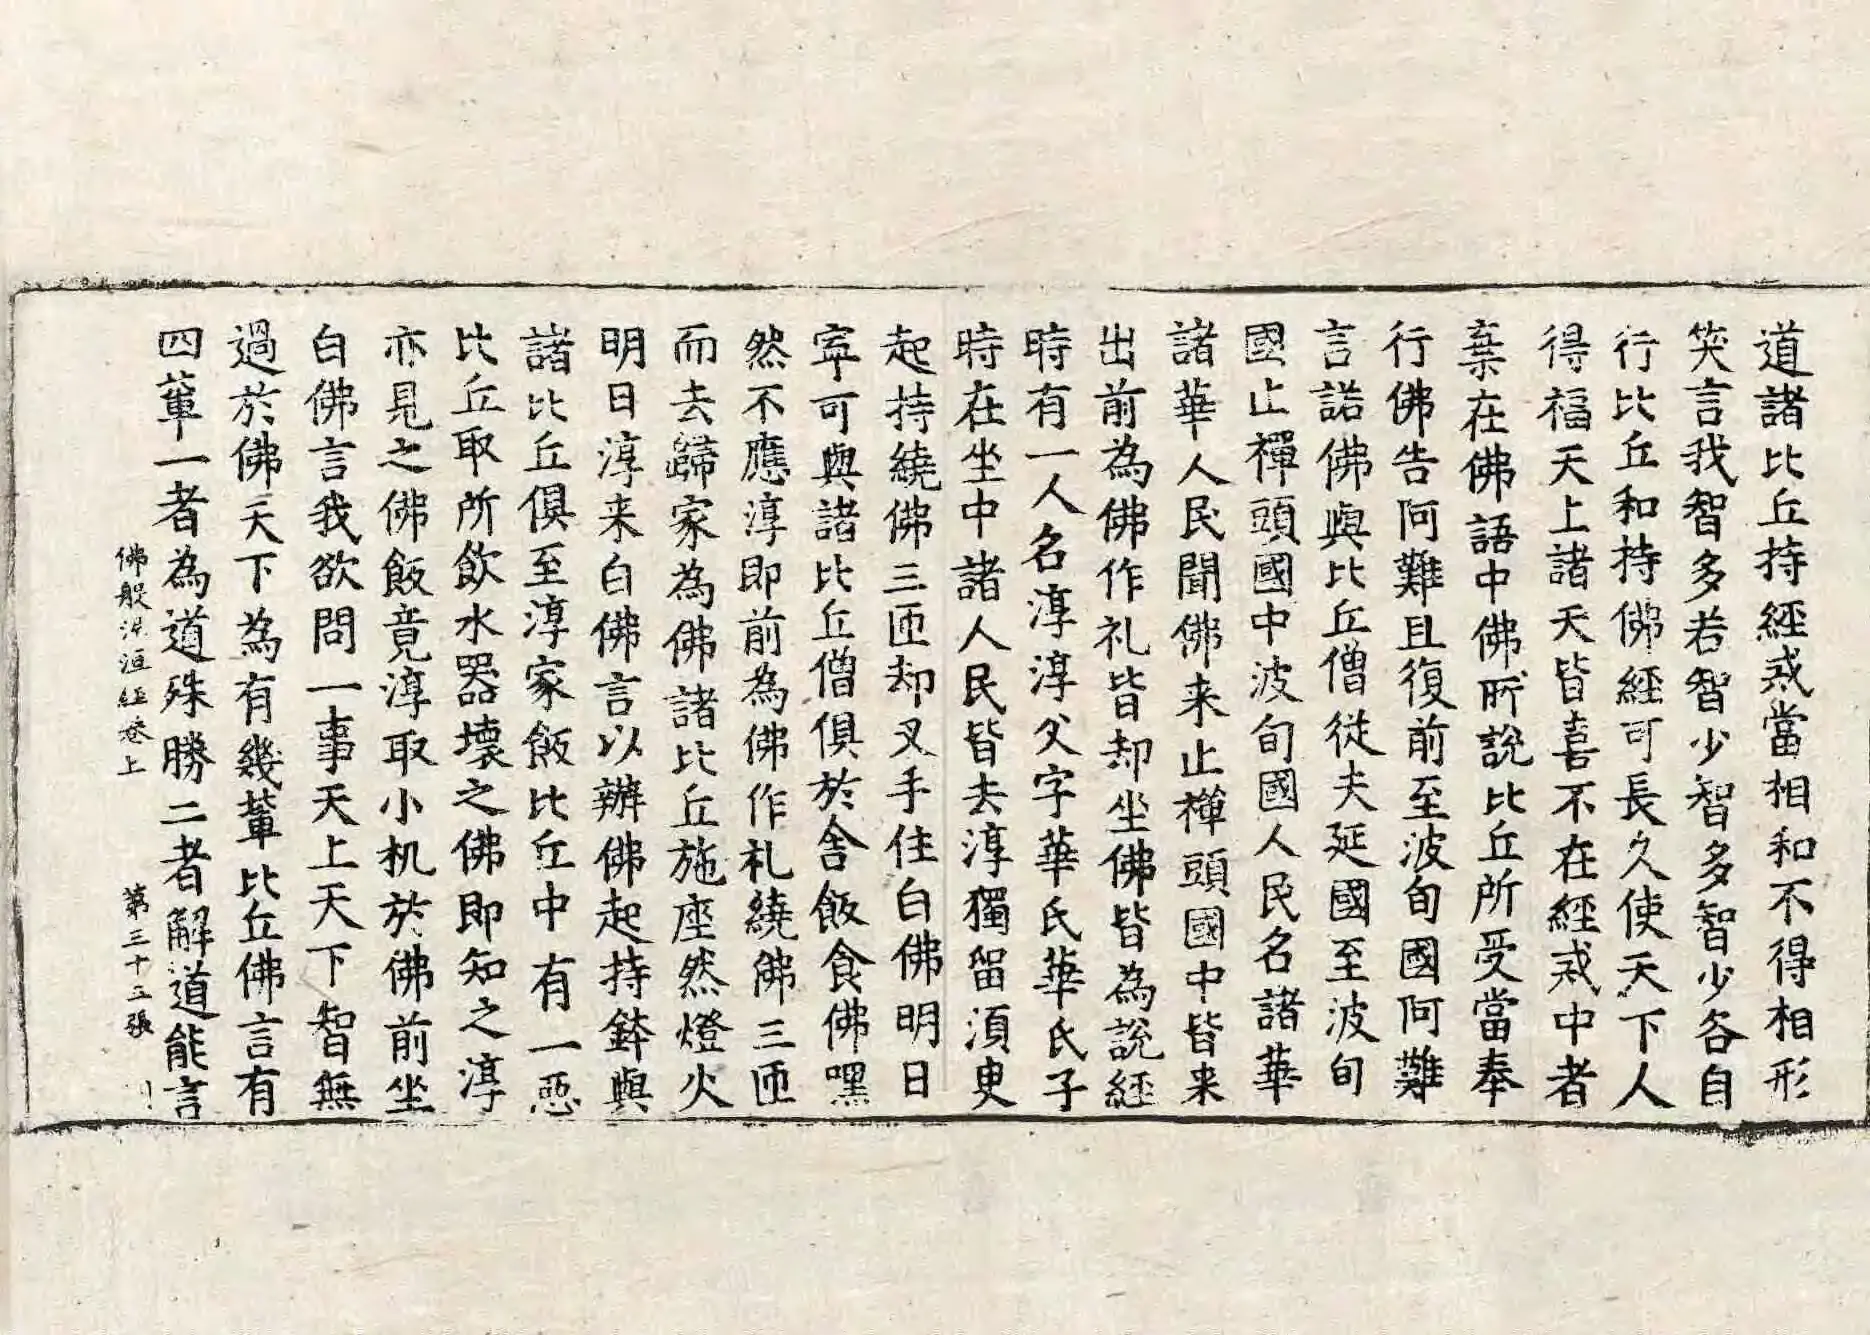 道諸比丘持經戒當相和不得相形
笑言我智多若智少智多智少各自
行比丘和持佛經可長久使天下人
得福天上諸天皆喜不在經戒中者
棄在佛語中佛所說比丘所受當奉
行佛告阿難且復前至波旬國阿難
言諾佛與比丘僧從夫延國至波旬
國止禪頭國中波旬國人民名諸華
諸華人民聞佛来止禪頭國中皆来
出前為佛作礼皆却坐佛皆為說經
時有一人名淳淳父字華氏華氏子
時在坐中諸人民皆去淳獨留須臾
起持繞佛三匝却叉手住白佛明日
寧可與諸比丘僧俱於舍飯食佛嘿
然不應淳即前為佛作礼繞佛三匝
而去歸家為佛諸比丘施座然燈火
明日淳来白佛言以辦佛起持鉢與
諸比丘俱至淳家飯比丘中有一惡
比丘取所飲水器壞之佛即知之淳
亦見之佛飯竟淳取小机於佛前坐
白佛言我欲問一事天上天下智無
過於佛天下為有幾輩比丘佛言有
四輩一者為道殊勝二者解道能言
佛般泥洹經卷上 第三十三張